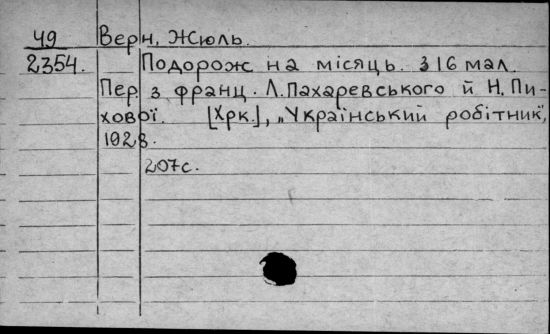 49 Верн, Жюль.
2354. Подорож на місяць. З 16 мал.
Пер. з франц. Л. Пахаревського й Н. Пи-
хової. [Хрк.], „Український робітник",
1928.
207с.